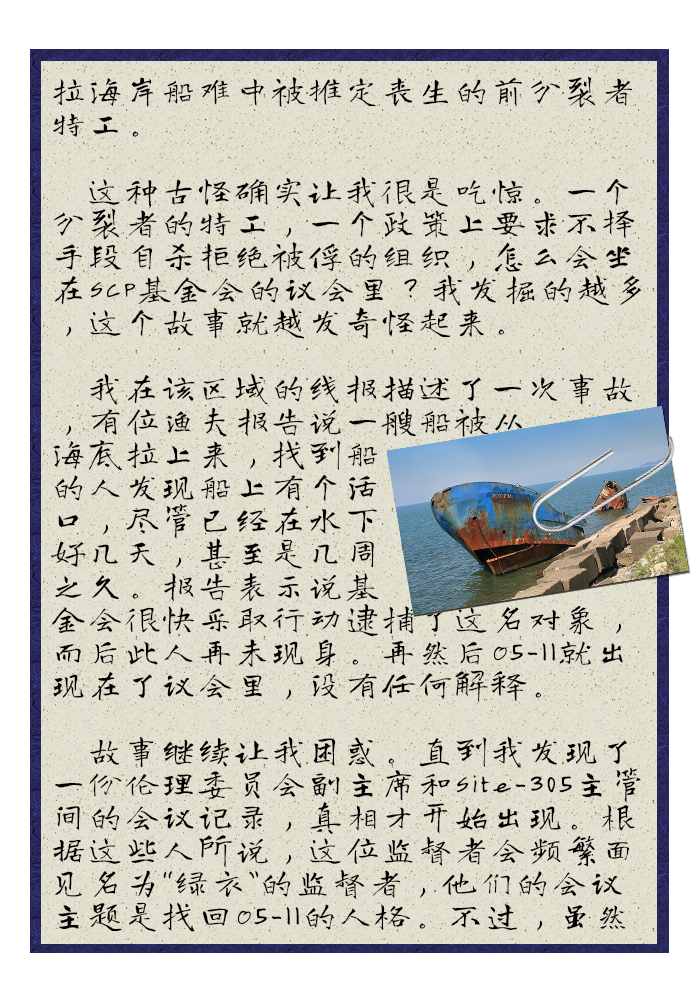 拉海岸船难中被推定丧生的前分裂者
特工。
这种古怪确实让我很是吃惊。一个
分裂者的特工，一个政策上要求不择
手段自杀拒绝被俘的组织，怎么会坐
在SCP基金会的议会里？我发掘的越多
，这个故事就越发奇怪起来。
我在该区域的线报描述了一次事故
，有位渔夫报告说一艘船被从
海底拉上来，找到船
的人发现船上有个活
口，尽管已经在水下
好几天，甚至是几周
之久。报告表示说基
金会很快采取行动逮捕了这名对象，
而后此人再未现身。再然后O5-11就出
现在了议会里，没有任何解释。
故事继续让我困惑。直到我发现了
一份伦理委员会副主席和Site-305主管
间的会议记录，真相才开始出现。根
据这些人所说，这位监督者会频繁面
见名为"绿衣"的监督者，他们的会议
主题是找回O5-11的人格。不过，虽然